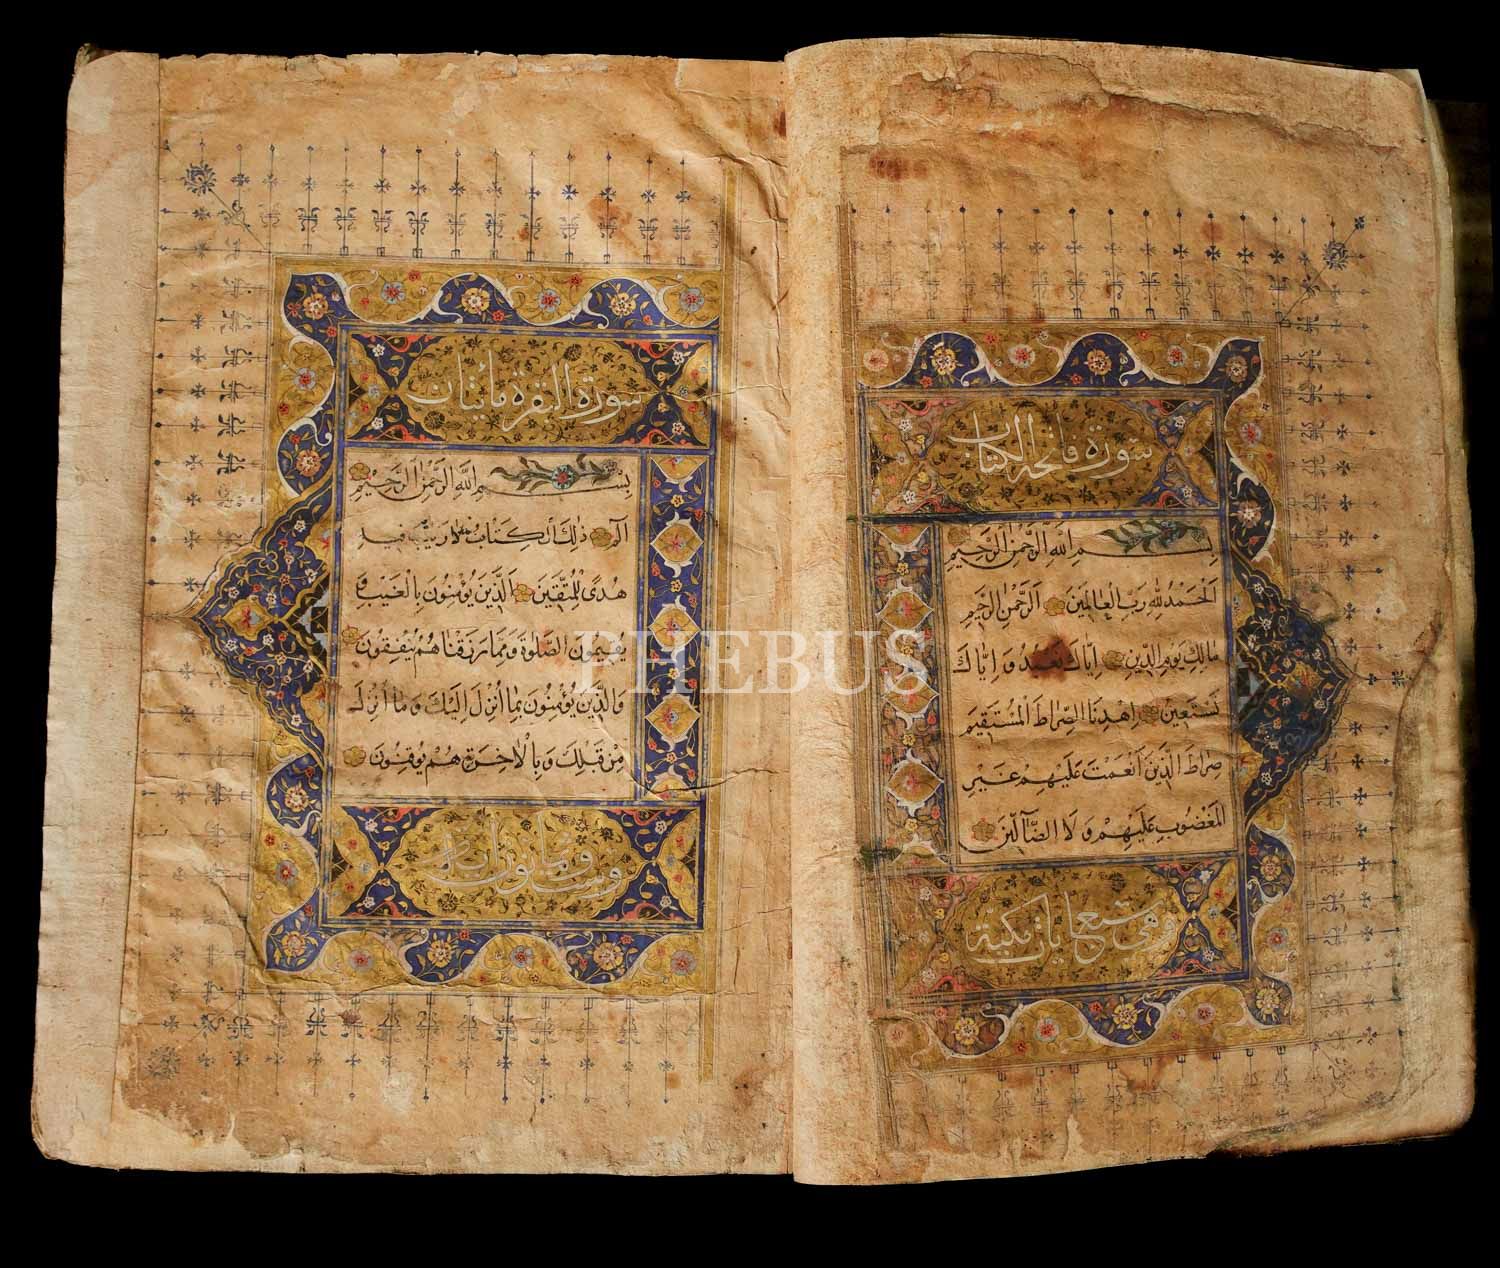 سورة فاتحة الكتاب
بسم الله الرحمن الرحيم
اَلْحَمْدُ لِلّٰهِ رَبِّ الْعَالَمِينَ اَلرَّحْمٰنِ الرَّحِيمِ
مَالِكِ يَوْمِ الدِّينِ اِيَّاكَ نَعْبُدُ وَ اِيَّاكَ
نَسْتَعِينُ اِهْدِنَا الصِّرَاطَ الْمُسْتَقِيمَ
صِرَاطَ الَّذِينَ اَنْعَمْتَ عَلَيْهِمْ غَيْرِ
الْمَغْضُوبِ عَلَيْهِمْ وَلَا الضَّآلِّينَ
وهي سبع ايات مكية
سورة البقرة مائتان
بسم الله الرحمن الرحيم
الٓمٓ ذٰلِكَ الْكِتَابُ لَا رَيْبَ فِيهِ
هُدًى لِلْمُتَّقِينَ اَلَّذِينَ يُؤْمِنُونَ بِالْغَيْبِ وَ
يُقِيمُونَ الصَّلٰوةَ وَمِمَّا رَزَقْنَاهُمْ يُنْفِقُونَ
وَالَّذِينَ يُؤْمِنُونَ بِمَا اُنْزِلَ اِلَيْكَ وَمَا اُنْزِلَ
مِنْ قَبْلِكَ وَبِالْاٰخِرَةِ هُمْ يُوقِنُونَ
وست وثمانون ايات
PHEBUS